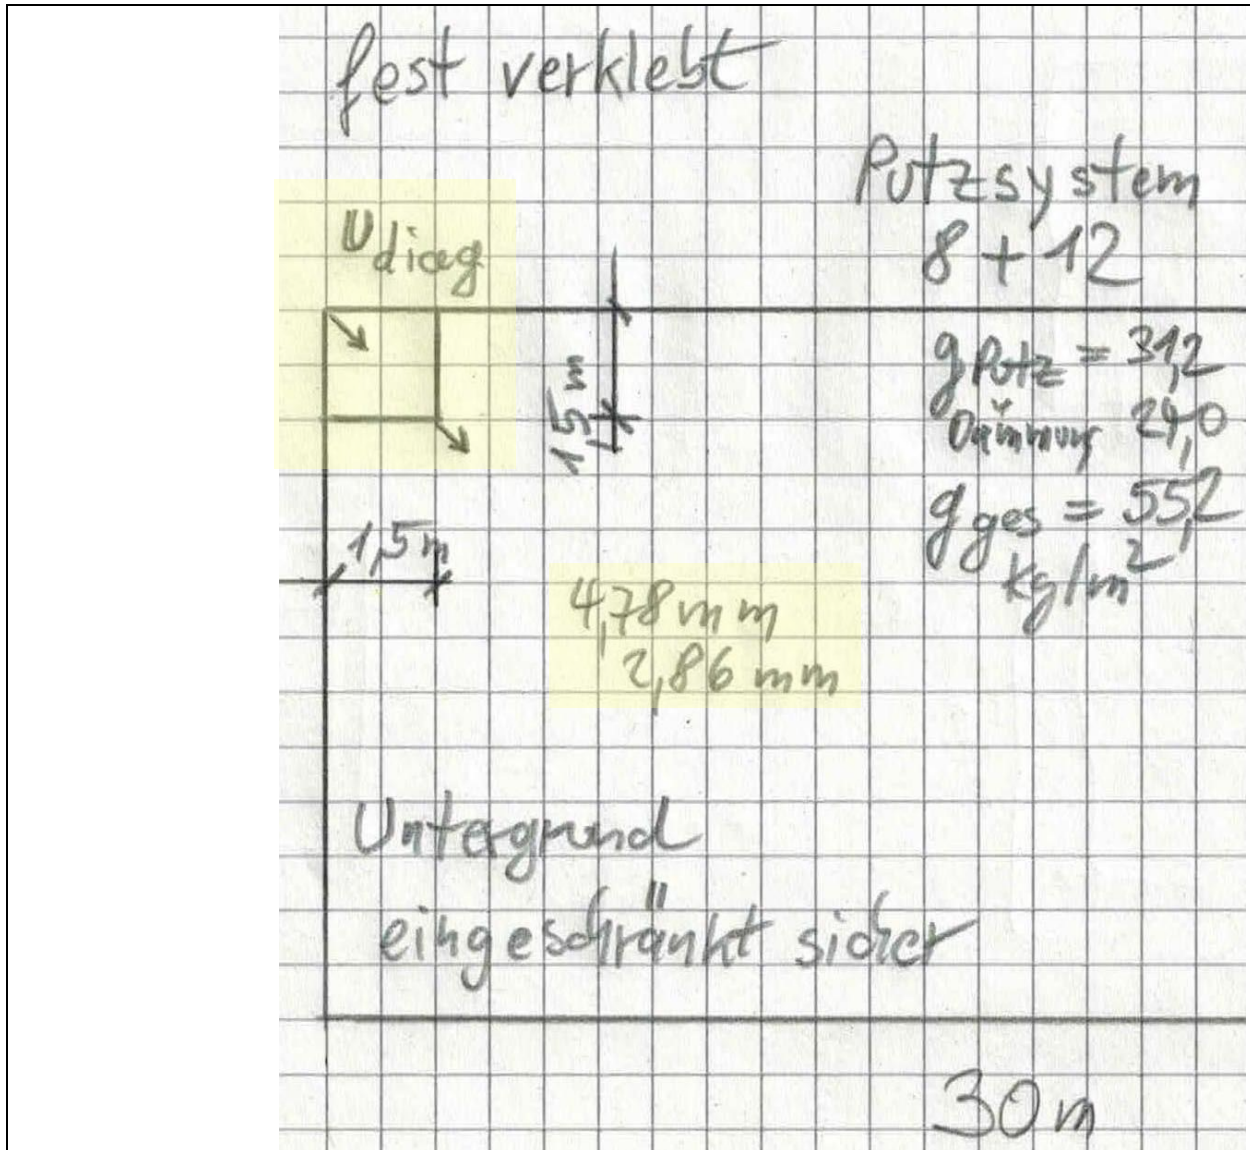 fest verklebt
Putzsystem
8 + 12
u diag
g Putz = 31,2
Dämmung 24,0
1,5 m
g ges = 55,2
kg/m²
1,5 m
4,78 mm
2,86 mm
Untergrund
eingeschränkt sicher
30 m